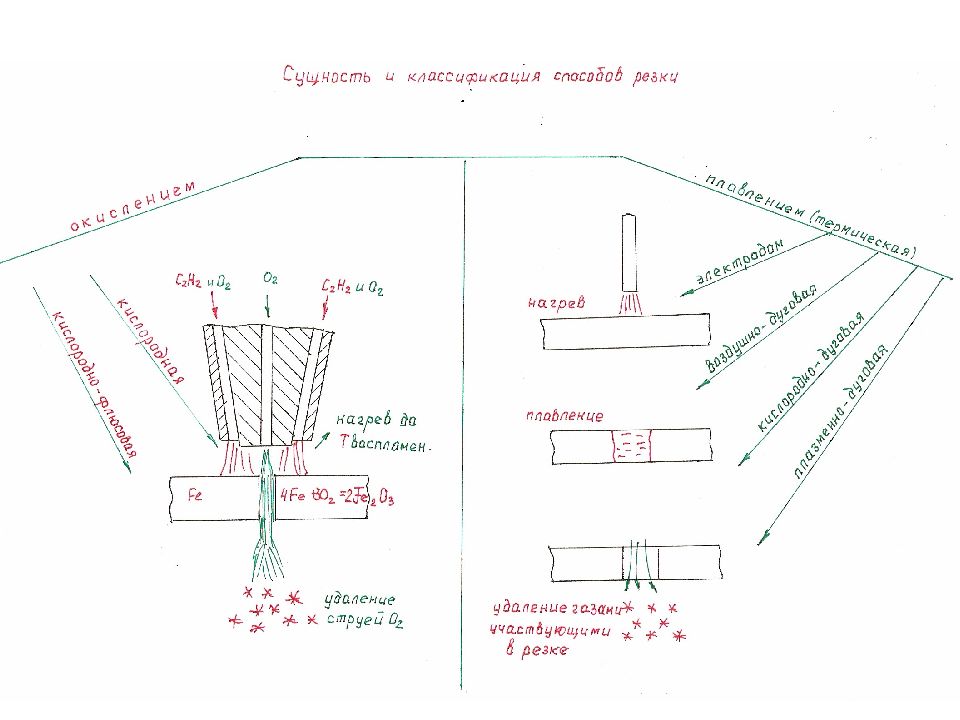 Сущность и классификация способов резки
окислением
кислородно-флюсовая
кислородная
C₂H₂ и O₂
O₂
C₂H₂ и O₂
нагрев до
Твоспламен.
Fe
4Fe+3O₂=2Fe₂O₃
удаление
струей O₂
плавлением (термическая)
электродом
воздушно-дуговая
кислородно-дуговая
плазменно-дуговая
нагрев
плавление
удаление газами
участвующими
в резке